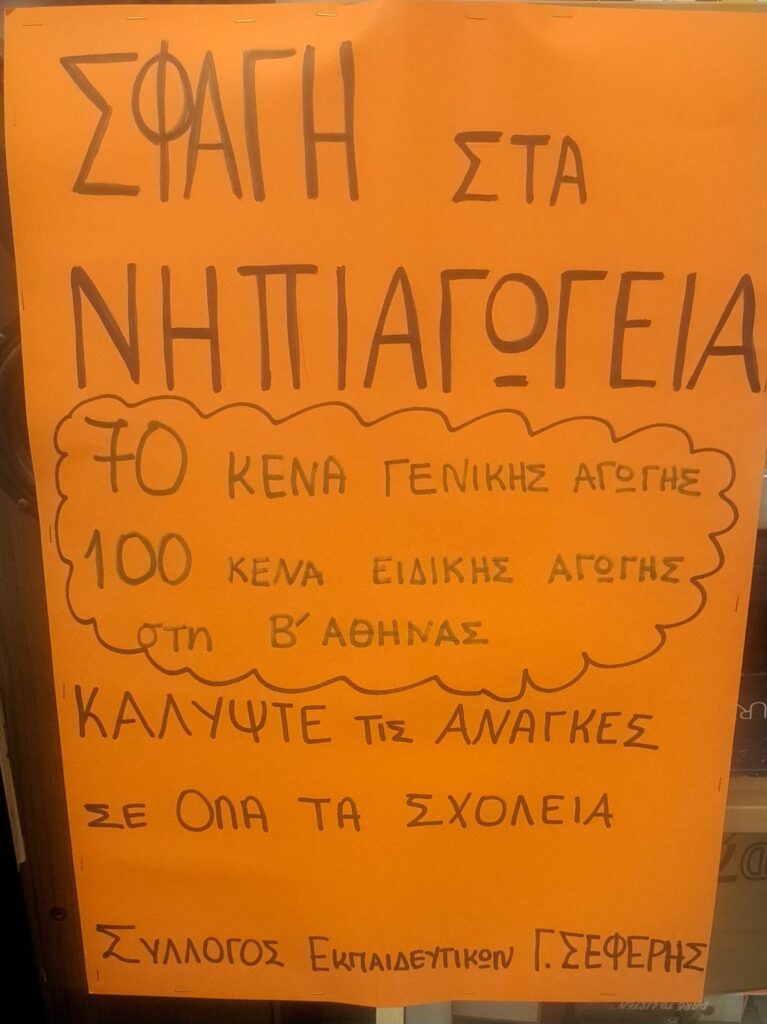 ΣΦΑΓΗ ΣΤΑ
ΝΗΠΙΑΓΩΓΕΙΑ
70 ΚΕΝΑ ΓΕΝΙΚΗΣ ΑΓΩΓΗΣ
100 ΚΕΝΑ ΕΙΔΙΚΗΣ ΑΓΩΓΗΣ
στη Β΄ ΑΘΗΝΑΣ
ΚΑΛΥΨΤΕ τις ΑΝΑΓΚΕΣ
ΣΕ ΟΛΑ ΤΑ ΣΧΟΛΕΙΑ
ΣΥΛΛΟΓΟΣ ΕΚΠΑΙΔΕΥΤΙΚΩΝ Γ. ΣΕΦΕΡΗΣ
DARE TO LISTEN